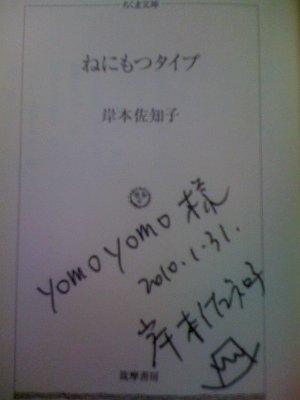 ちくま文庫
ねにもつタイプ
岸本佐知子
yomoyomo 様
2010.1.31.
岸本佐知子
筑摩書房